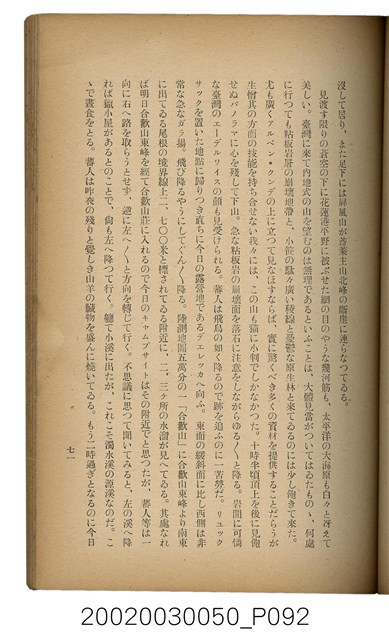 沒して居り、また足下には屛風山が畚萊主山北峰の斷崖に連らなつてゐる。
見渡す限りの蒼空の下に花蓮港平野に被ぶせた網の目のやうな幾河筋も、太平洋の大海原も白々と冴えて
美しい。臺灣に來て內地式の山を望むのは無理であるといふことは、大體見當がついてはゐたものゝ、何處
に行つても粘板岩層の崩壞地帶と、小笹の駄々廣い稜線と憂鬱な原生林と來てゐるのには少し飽きて來た。
尤も廣くアルペン・クンデの上に立つて見なほすならば、實に驚くべき多くの資材を提供することだらうが
生憎其の方面の技能を持ち合せない我々には、この山も猫に小判でしかなかつた。十時半頃頂上を後に見飽
せぬパノラマに心を殘して下山。急な粘板岩の崩壞面を落石に注意をしながらゆる〳〵と降る。岩間に可憐
な臺灣のエーデルワイスの顏も見受けられる。蕃人は飛鳥の如く降るので跡を追ふのに一苦勞だ。リュック
サックを置いた地點に歸りつき直ちに今日の露營地であるデエレツカへ向ふ。東面の緩斜面に比し西側は非
常な急なガラ場。飛び降るやうにしてぐん〳〵降る。陸測地圖五萬分の一「合歡山」に合歡山東峰より南東
に出てゐる尾根の境界線上二、七〇〇米と標されてゐる附近に、二、三ヶ所の水溜が見へてゐる。其處なれ
ば明日合歡山東峰を經て合歡山莊に入れるので今日のキャムプサイトはその附近でと思つたが、蕃人等は一
向に右へ路を取らうとせず、逆に左へ〳〵と方向を轉じて行く。不思議に思つて聞いてみると、左の溪へ降
れば獵小屋があるとのことで、尙も左へ降つて行く。軈て小溪に出たが、これこそ濁水溪の源溪なのだ。こ
ゝで晝食をとる。蕃人は昨夜の殘りと覺しき山羊の臟物を盛んに燒いてゐる。もう二時過ぎとなるのに今日
七一
20020030050_P092